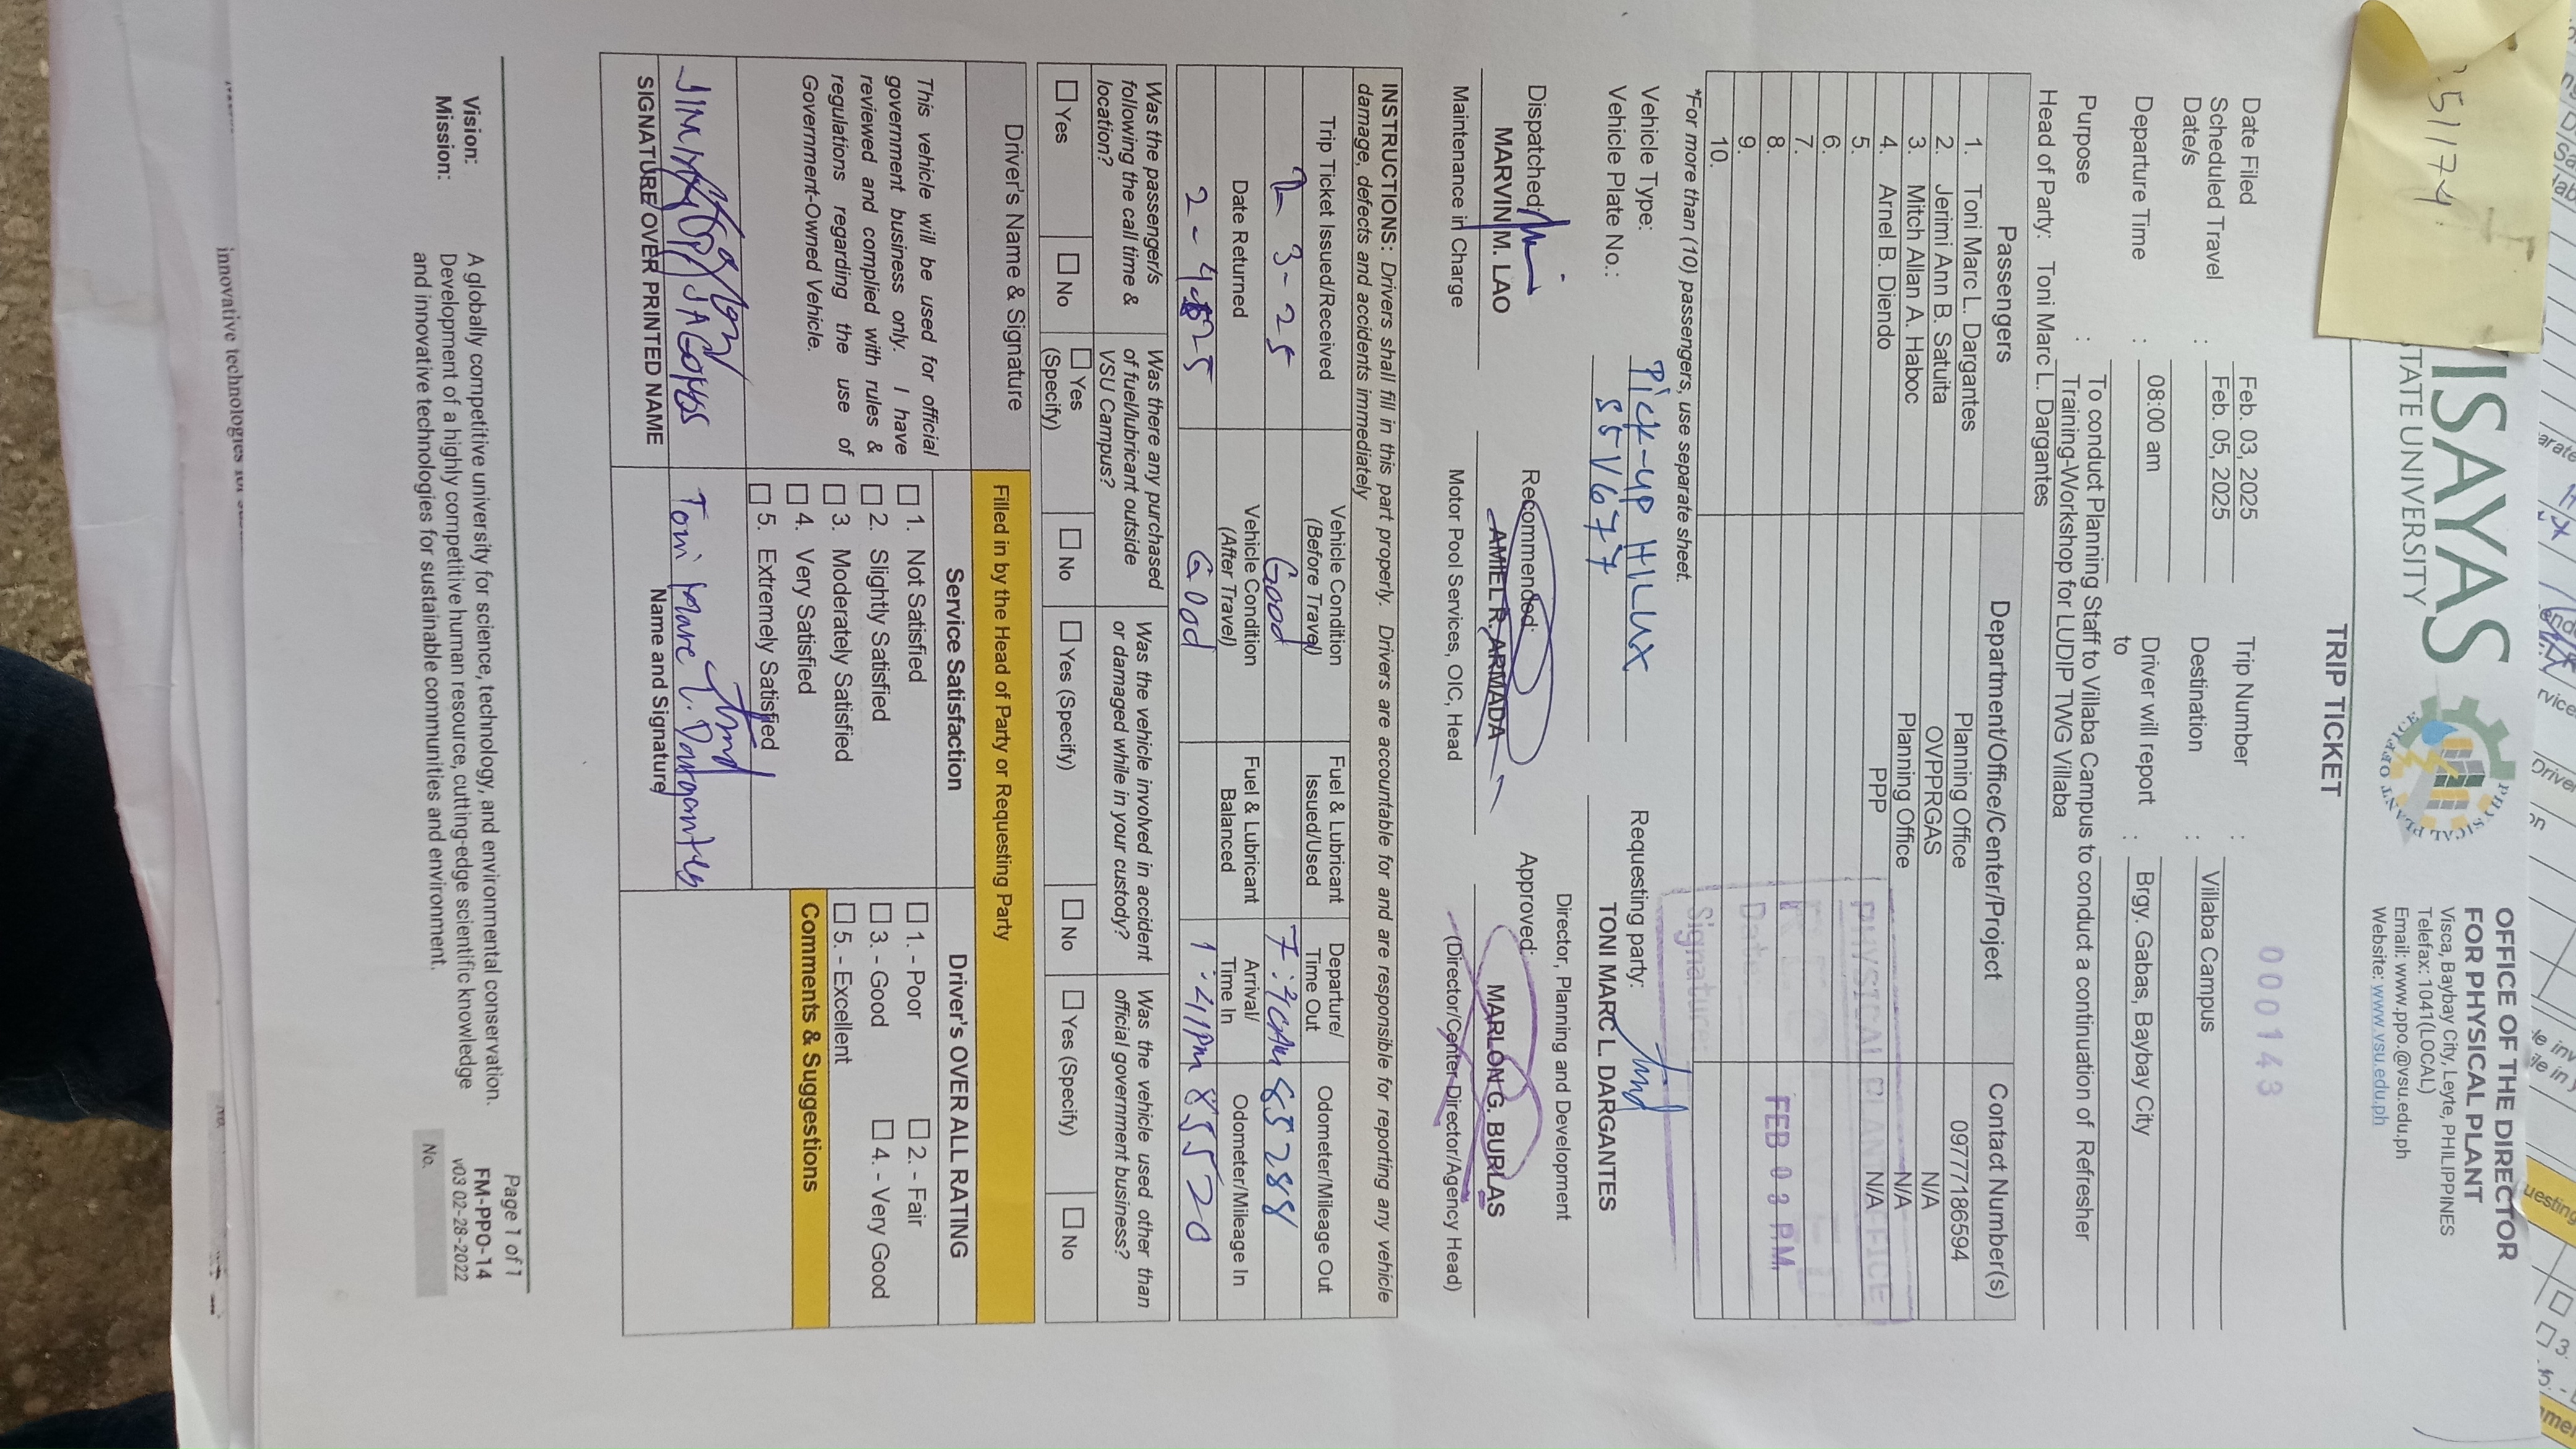 51174
ISAYAS
STATE UNIVERSITY
PHYSICAL PLANT OFFICE
OFFICE OF THE DIRECTOR
FOR PHYSICAL PLANT
Visca, Baybay City, Leyte, PHILIPPINES
Telefax: 1041(LOCAL)
Email: www.ppo.@vsu.edu.ph
Website: www.vsu.edu.ph
TRIP TICKET
000143
Date Filed : Feb. 03, 2025 Trip Number :
Scheduled Travel Date/s : Feb. 05, 2025 Destination : Villaba Campus
Departure Time : 08:00 am Driver will report to : Brgy. Gabas, Baybay City
Purpose : To conduct Planning Staff to Villaba Campus to conduct a continuation of Refresher
Training-Workshop for LUDIP TWG Villaba
Head of Party: Toni Marc L. Dargantes
Passengers Department/Office/Center/Project Contact Number(s)
1. Toni Marc L. Dargantes Planning Office 09777186594
2. Jerimi Ann B. Satuita OVPPRGAS N/A
3. Mitch Allan A. Haboc Planning Office N/A
4. Arnel B. Diendo PPP N/A
5.
6.
7.
8.
9.
10.
PHYSICAL PLANT OFFICE
Date FEB 03 P.M.
Signature
*For more than (10) passengers, use separate sheet.
Vehicle Type: Pick-up HILUX Requesting party:
Vehicle Plate No.: S5V677 TONI MARC L. DARGANTES
Director, Planning and Development
Dispatched: Recommended: Approved:
MARVIN M. LAO AMIEL R. ARMADA MARLON G. BURLAS
Maintenance in Charge Motor Pool Services, OIC, Head (Director/Center Director/Agency Head)
INSTRUCTIONS: Drivers shall fill in this part properly. Drivers are accountable for and are responsible for reporting any vehicle
damage, defects and accidents immediately
Trip Ticket Issued/Received Vehicle Condition (Before Travel) Fuel & Lubricant Issued/Used Departure/ Time Out Odometer/Mileage Out
2 3-25 Good 7:30AM 85288
Date Returned Vehicle Condition (After Travel) Fuel & Lubricant Balanced Arrival/ Time In Odometer/Mileage In
Good 1:41PM 85520
Was the passenger/s following the call time & location? Was there any purchased of fuel/lubricant outside VSU Campus? Was the vehicle involved in accident or damaged while in your custody? Was the vehicle used other than official government business?
☐ Yes ☐ No ☐ Yes (Specify) ☐ No ☐ Yes (Specify) ☐ No ☐ Yes (Specify) ☐ No
Driver's Name & Signature Filled in by the Head of Party or Requesting Party
Service Satisfaction Driver's OVER ALL RATING
This vehicle will be used for official
government business only. I have
reviewed and complied with rules &
regulations regarding the use of
Government-Owned Vehicle.
☐ 1. Not Satisfied
☐ 2. Slightly Satisfied
☐ 3. Moderately Satisfied
☐ 4. Very Satisfied
☐ 5. Extremely Satisfied
☐ 1. - Poor ☐ 2. - Fair
☐ 3. - Good ☐ 4. - Very Good
☐ 5. - Excellent
Comments & Suggestions
Toni Marc L. Dargantes
SIGNATURE OVER PRINTED NAME Name and Signature
Vision: A globally competitive university for science, technology, and environmental conservation.
Mission: Development of a highly competitive human resource, cutting-edge scientific knowledge
and innovative technologies for sustainable communities and environment.
Page 1 of 1
FM-PPO-14
v03 02-28-2022
No.
innovative technologies for